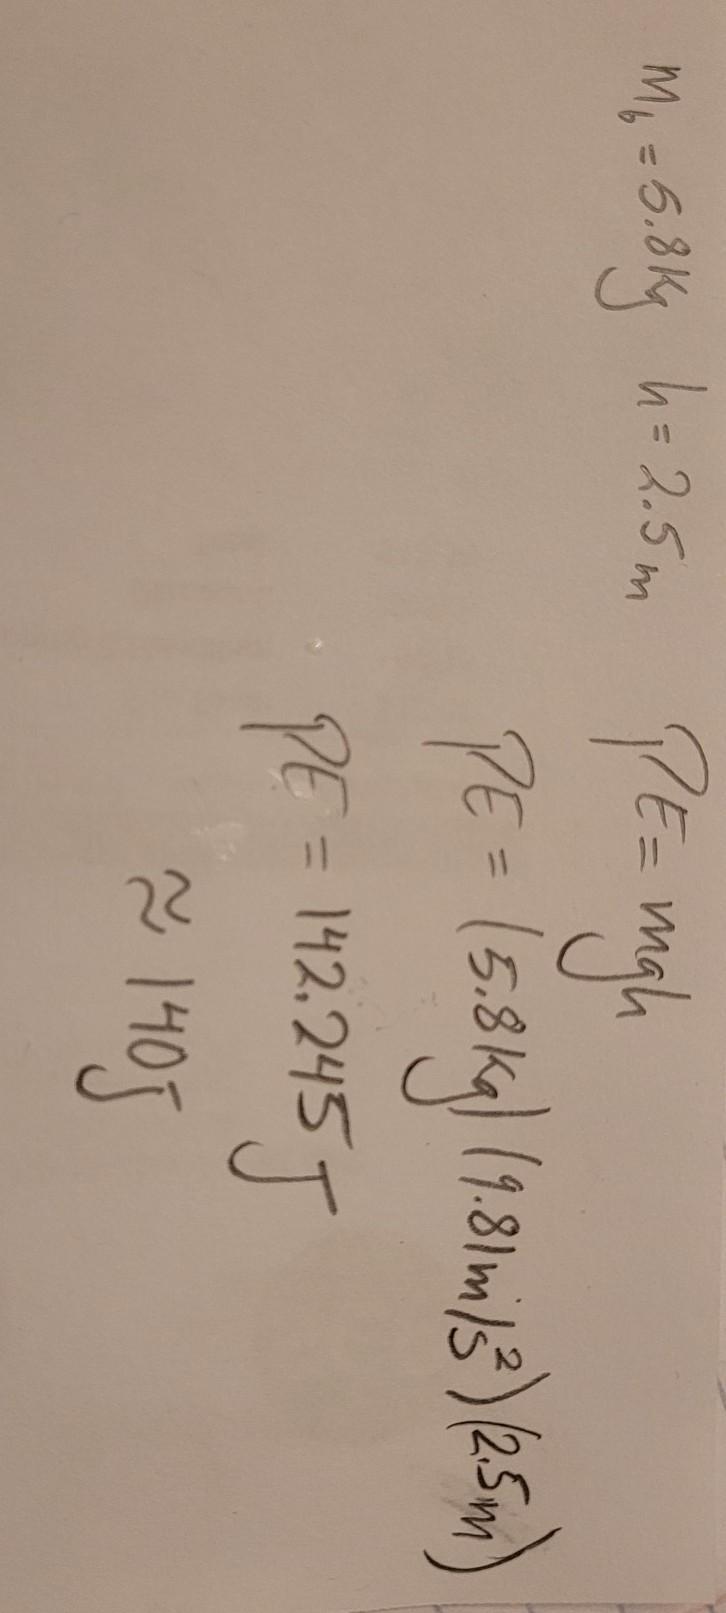 m_b = 5.8kg h = 2.5m PE = mgh
PE = (5.8kg)(9.81m/s²)(2.5m)
PE = 142.245J
≈ 140J